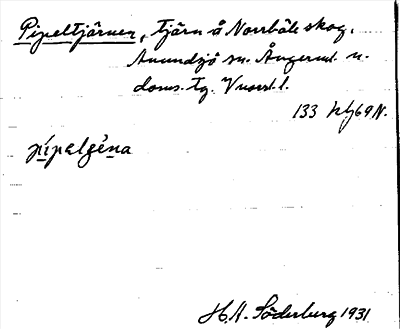 Pipeltjärnen, tjärn å Norrböle skog,
Anundsjö sn. Ångerml. n.
doms. tg. V.norrl. l.
133 69 N.
pípalǥèna
H.A. Söderberg 1931